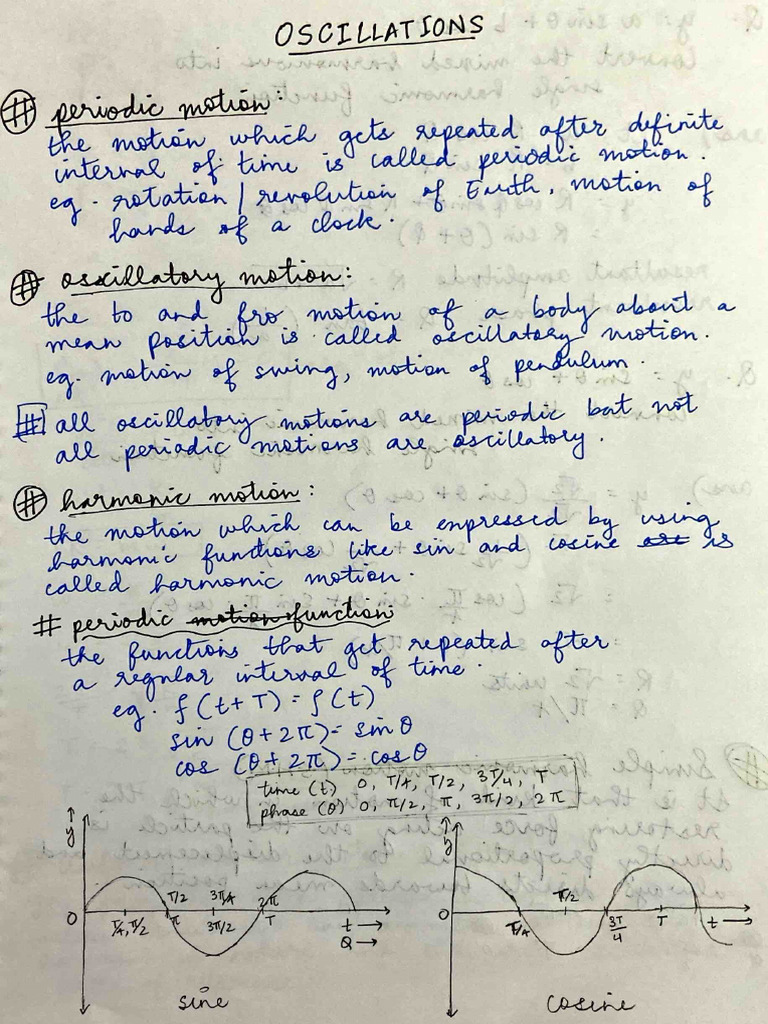 OSCILLATIONS
# periodic motion:
the motion which gets repeated after definite
interval of time is called periodic motion.
eg. rotation/revolution of Earth, motion of
hands of a clock.
# osxillatory motion:
the to and fro motion of a body about a
mean position is called oscillatory motion.
eg. motion of swing, motion of pendulum.
# all oscillatory motions are periodic but not
all periodic motions are oscillatory.
# harmonic motion:
the motion which can be enpressed by using
harmonic functions like sin and cosine is
called harmonic motion.
# periodic motion function
the functions that get repeated after
a regular interval of time.
eg. f(t+T) = f(t)
sin (θ+2π) = sin θ
cos (θ+2π) = cos θ
time (t) 0, T/4, T/2, 3T/4, T
phase (θ) 0, π/2, π, 3π/2, 2π
y
T/2 3T/4 2π
0 T/4, π/2 π 3π/2 T t →
θ →
sine
y
π/2
0 T/4 3T/4 T t →
cosine